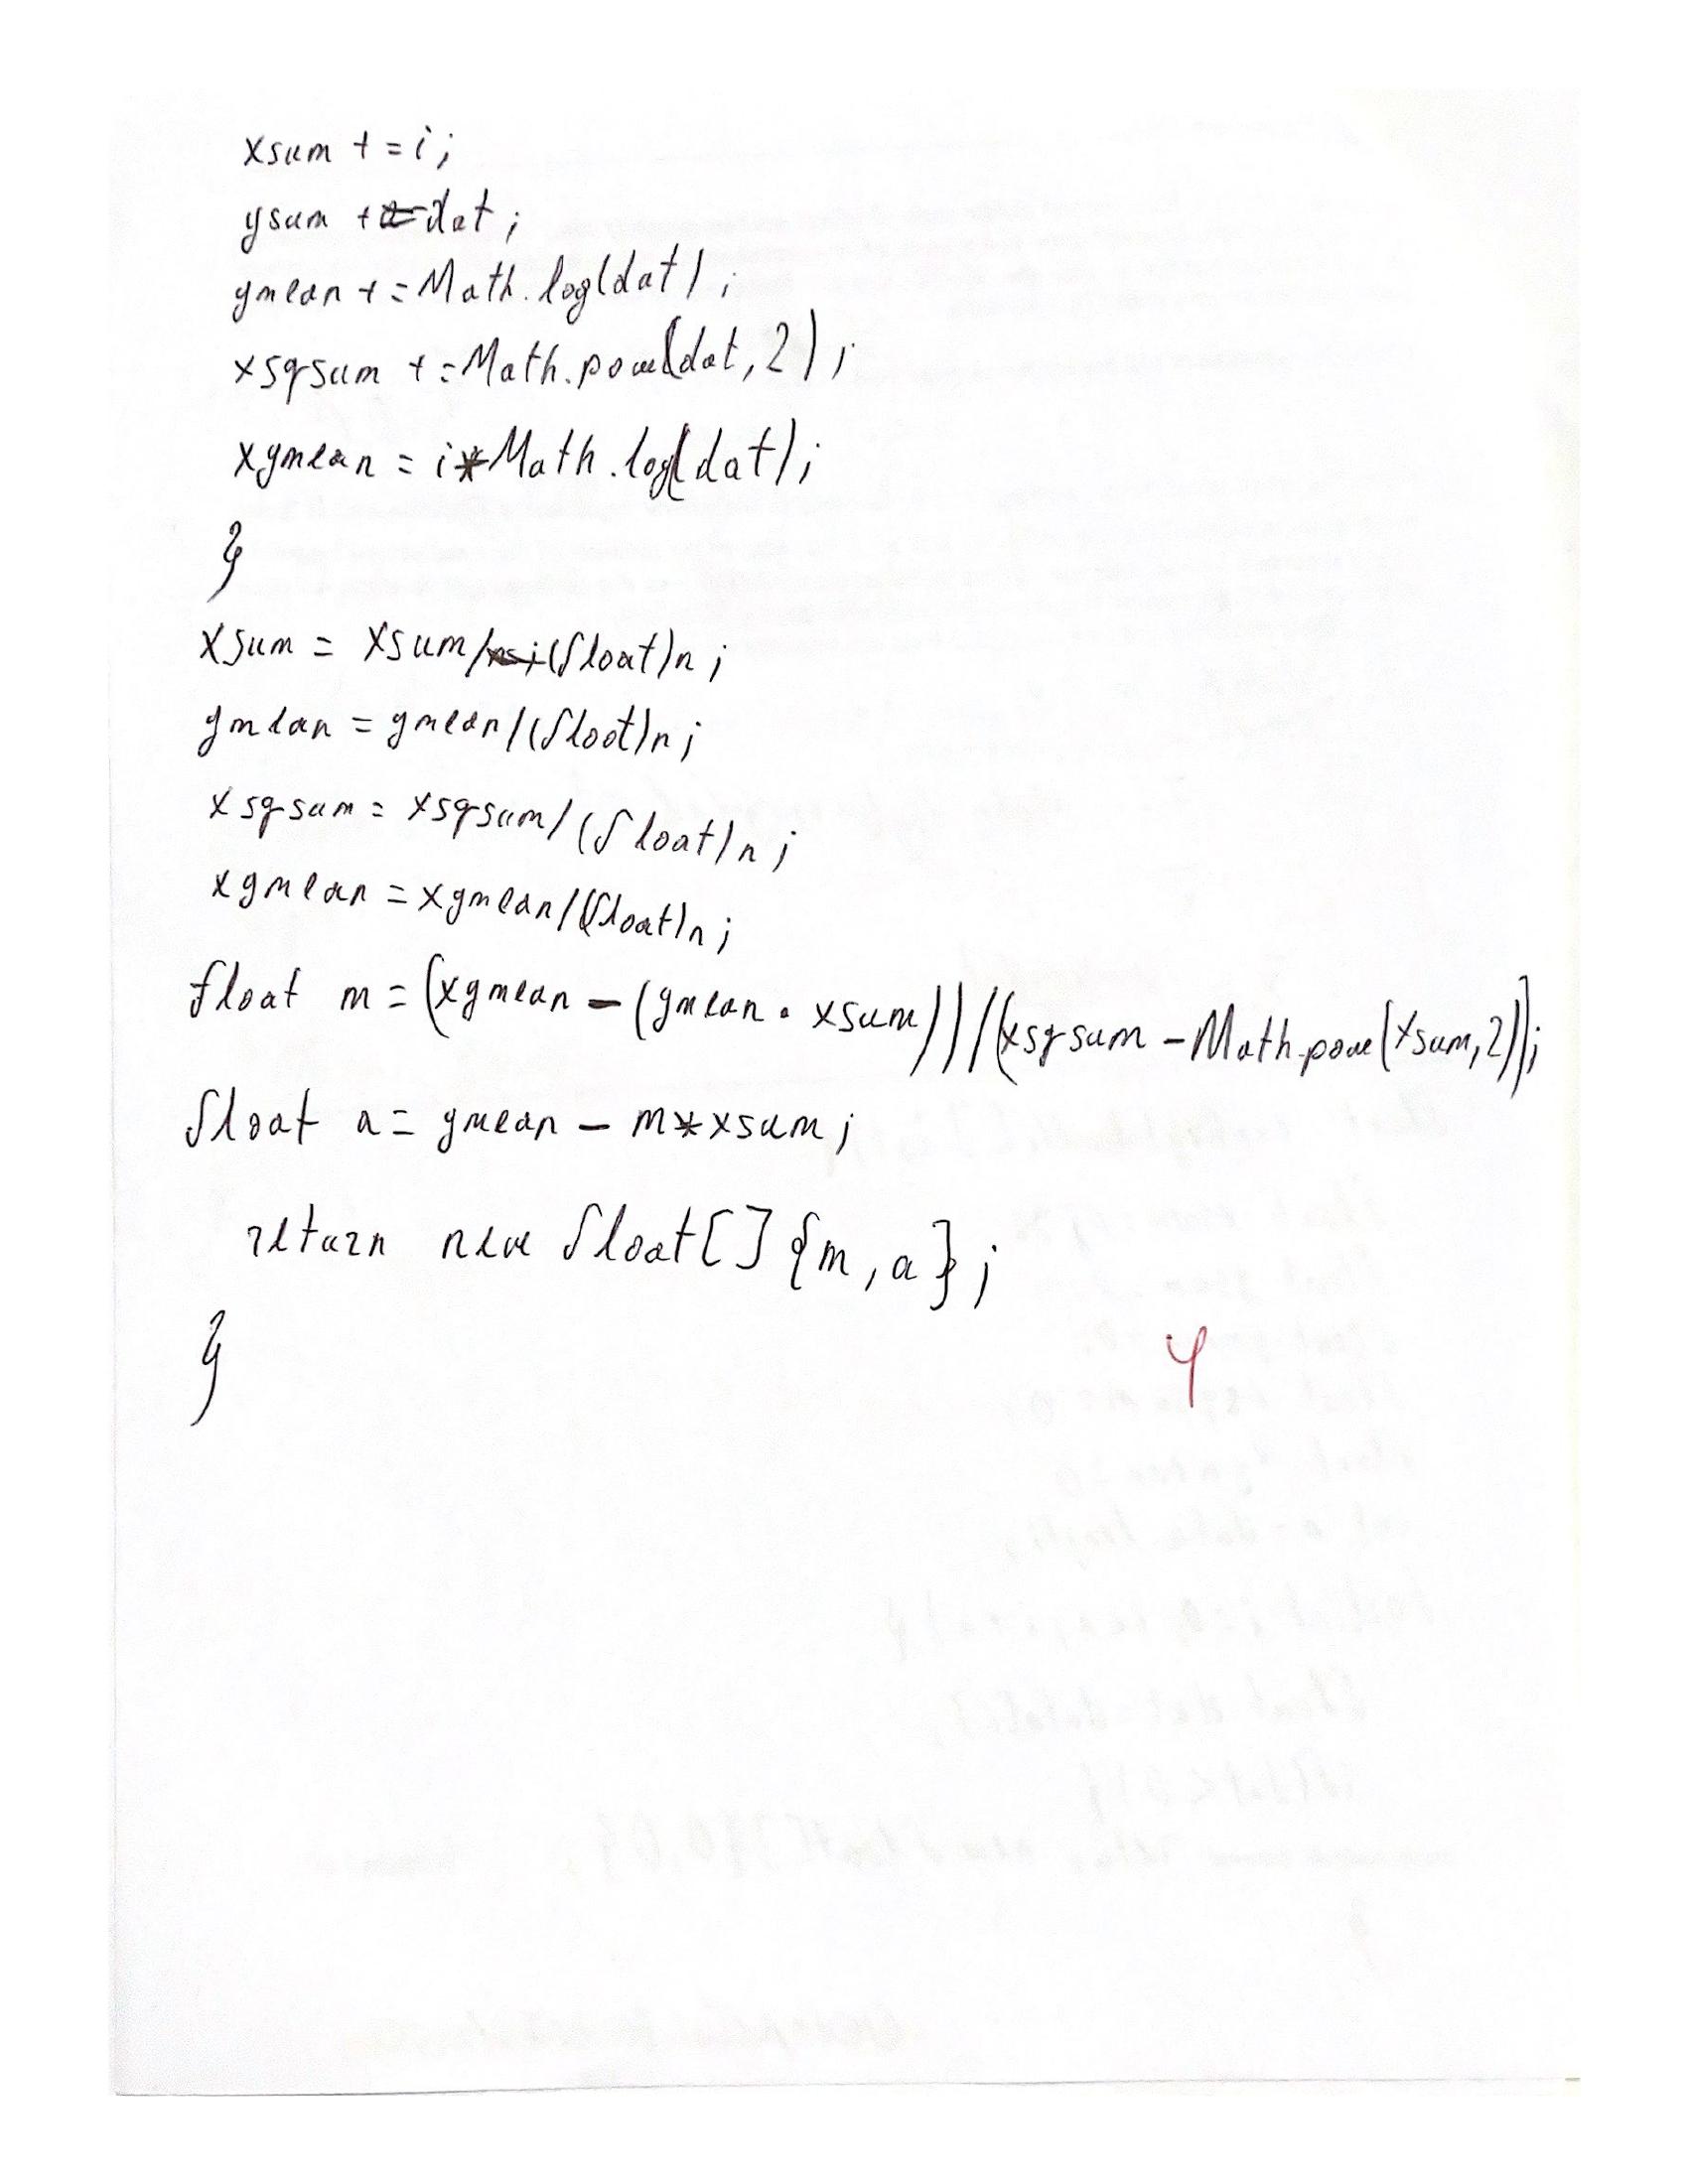 xsum += i;
ysum += dat;
ymean += Math.log(dat);
xsqsum += Math.pow(dat, 2);
xymean = i*Math.log(dat);
}
xsum = xsum/(float)n;
ymean = ymean/(float)n;
xsqsum = xsqsum/(float)n;
xymean = xymean/(float)n;
float m = (xymean - (ymean • xsum))/(xsqsum - Math.pow(xsum, 2));
float a = ymean - m*xsum;
return new float[]{m, a};
}
4